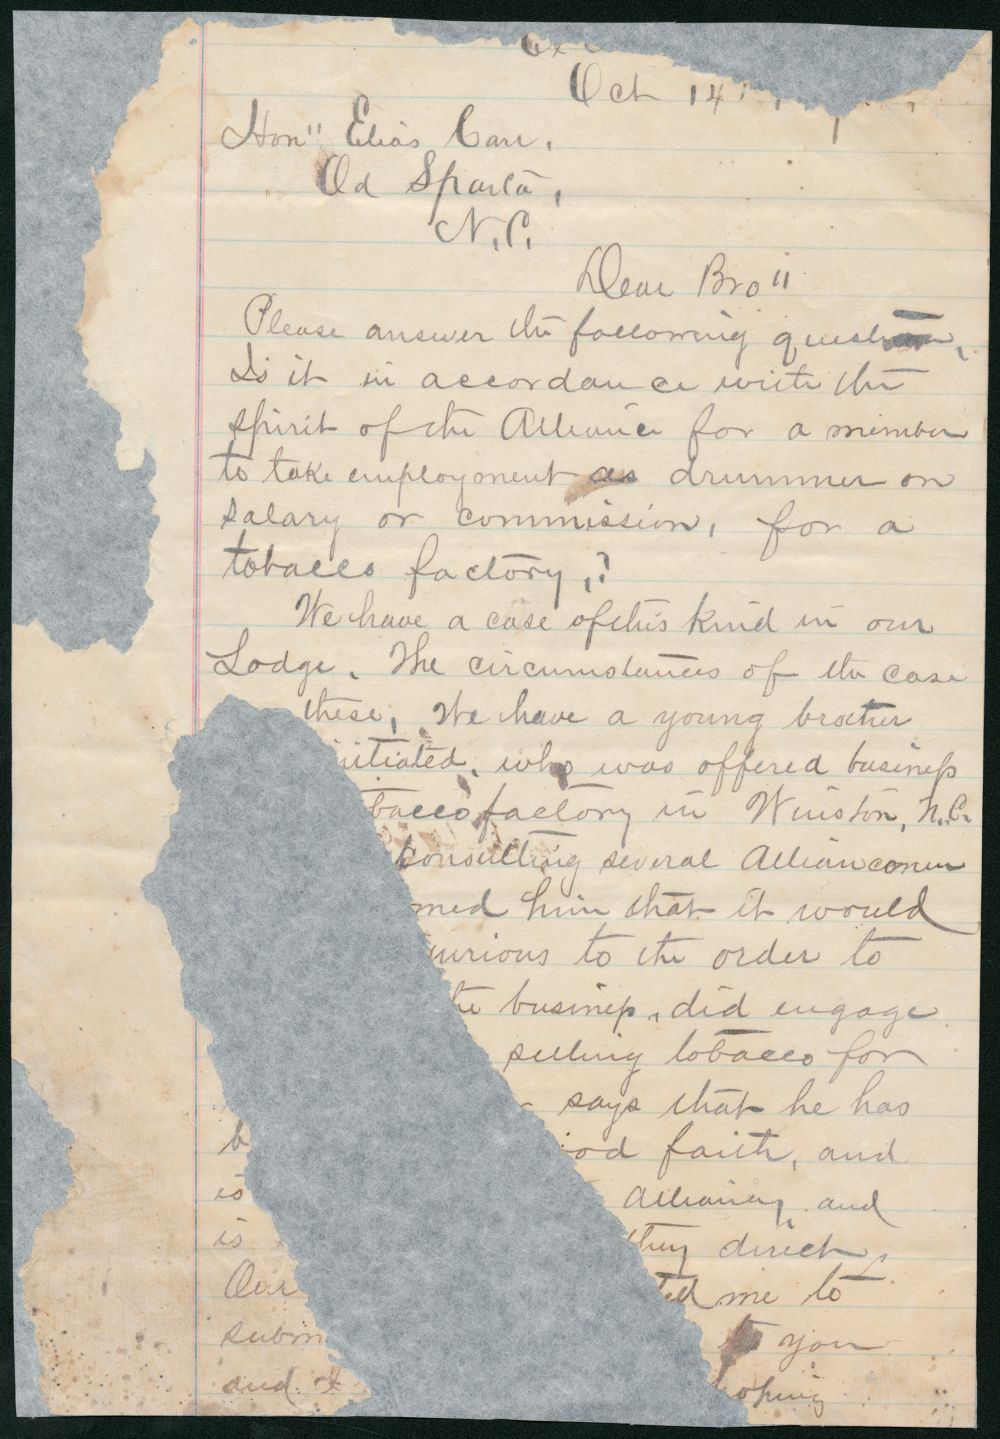 Oct 14
Hon" Elias Carr,
Old Sparta,
N.C.
Dear Bro"
Please answer the following question,
Is it in accordance with the
spirit of the Alliance for a member
to take employment as drummer on
salary or commission, for a
tobacco factory,?
We have a case of this kind in our
Lodge. The circumstances of the case
these, We have a young brother
initiated, who was offered business
bacco factory in Winston, N.C.
consulting several Alliancemen
med him that it would
urious to the order to
the business, did engage
selling tobacco for
says that he has
b ood faith, and
is Alliance, and
is they direct,
Our ted me to
subm to you
and I hoping